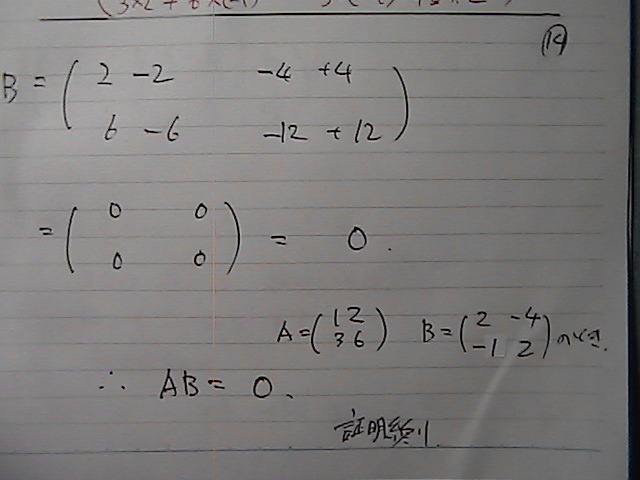 ⑭
B = ( 2 - 2 -4 + 4
6 - 6 -12 + 12 )
= ( 0 0
0 0 ) = 0.
A = ( 1 2
3 6 ) B = ( 2 -4
-1 2 ) のとき.
∴ AB = 0.
証明終り.